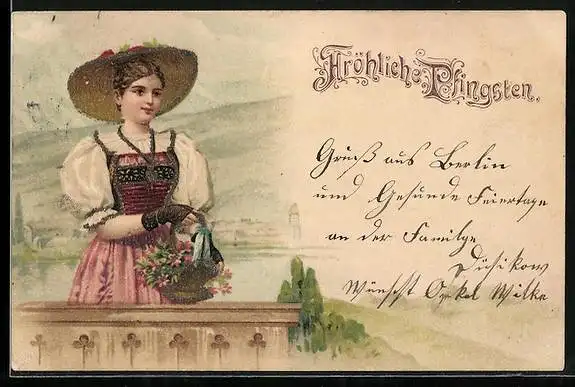 Fröhliche Pfingsten.
Gruß aus Berlin
und Gesunde Feiertage
an der Familye
Düsikow
Wünscht Onkel Wilke